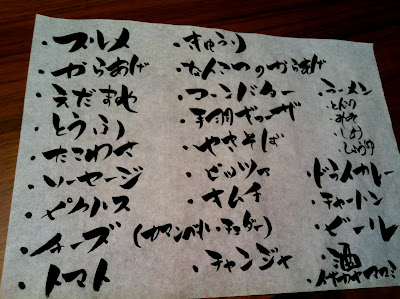 ・スルメ
・からあげ
・えだまめ
・とうふ
・たこわさ
・ソーセージ
・ピクルス
・チーズ (カマンベール・チェダー)
・トマト
・きゅうり
・なんこつのからあげ
・コーンバター
・手羽ギョーザ
・やきそば
・ピッツァ
・キムチ
・チャンジャ
・ラーメン
・みそ
・しお
・しょうゆ
・ドライカレー
・チャーハン
・ビール
・酒